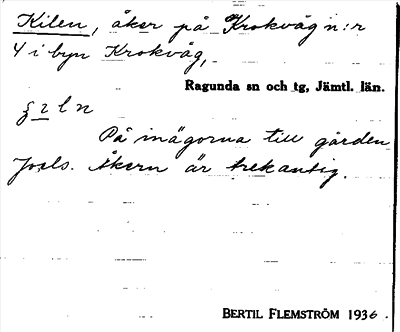 Kilen, åker på Krokvåg n:r
4 i byn Krokvåg,
Ragunda sn och tg, Jämtl. län.
På inägorna till gården
Joels. Åkern är trekantig.
BERTIL FLEMSTRÖM 1936.